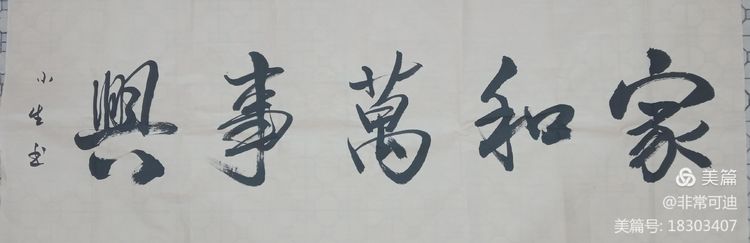 家和萬事興
小生书
美篇
@非常可迪
美篇号: 18303407